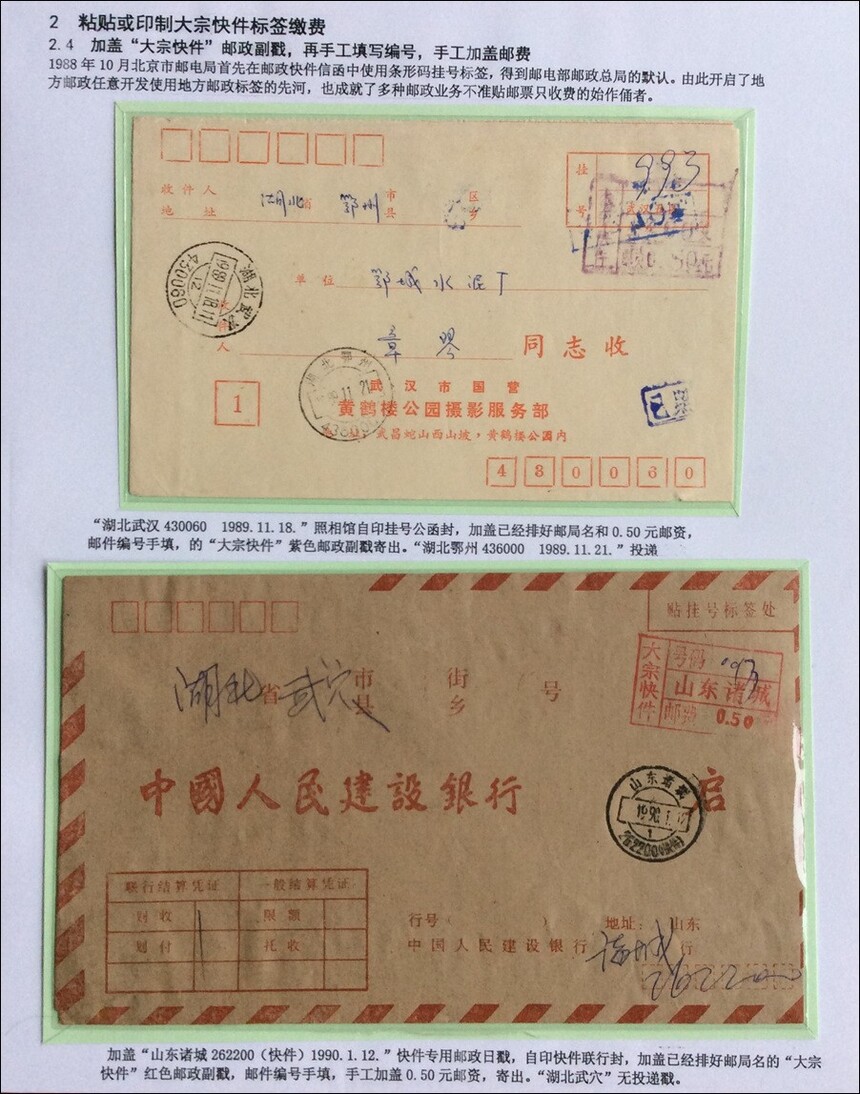 2 粘贴或印制大宗快件标签缴费
2.4 加盖“大宗快件”邮政副戳，再手工填写编号，手工加盖邮费
1988 年 10 月北京市邮电局首先在邮政快件信函中使用条形码挂号标签，得到邮电部邮政总局的默认。由此开启了地
方邮政任意开发使用地方邮政标签的先河，也成就了多种邮政业务不准贴邮票只收费的始作俑者。
挂号
993
收件人
地 址
湖北省 鄂州 市县 区乡
湖北武汉
1989.11.18.11
12
430060
单位 鄂城水泥厂
人 章琴 同志收
湖北鄂州
11.21
1
武汉市国营
黄鹤楼公园摄影服务部
武昌蛇山西山坡，黄鹤楼公园内
已
430060
“湖北武汉 430060 1989.11.18.”照相馆自印挂号公函封，加盖已经排好邮局名和 0.50 元邮资，
邮件编号手填，的“大宗快件”紫色邮政副戳寄出。“湖北鄂州 436000 1989.11.21.”投递
贴挂号标签处
大宗快件
号码
山东诸城
邮费 0.50
湖北省 武穴 市县 街乡 号
中國人民建設銀行 启
山东诸城
1990.1.12
1
262200(快件)
联行结算凭证 一般结算凭证
划收 限额
划付 托收
行号（ ） 地址： 山东
中国人民建设银行 诸城 行
262200
加盖“山东诸城 262200（快件）1990.1.12.”快件专用邮政日戳，自印快件联行封，加盖已经排好邮局名的“大宗
快件”红色邮政副戳，邮件编号手填，手工加盖 0.50 元邮资，寄出。“湖北武穴”无投递戳。